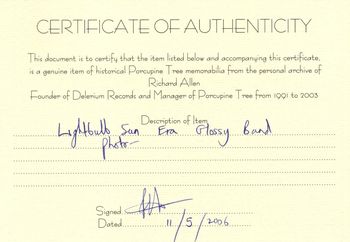 CERTIFICATE OF AUTHENTICITY
This document is to certify that the item listed below and accompanying this certificate,
is a genuine item of historical Porcupine Tree memorabilia from the personal archive of
Richard Allen
Founder of Delerium Records and Manager of Porcupine Tree from 1991 to 2003
Description of Item
Lightbulb Sun Era Glossy Band
photo-
Signed
Dated 11/5/2006